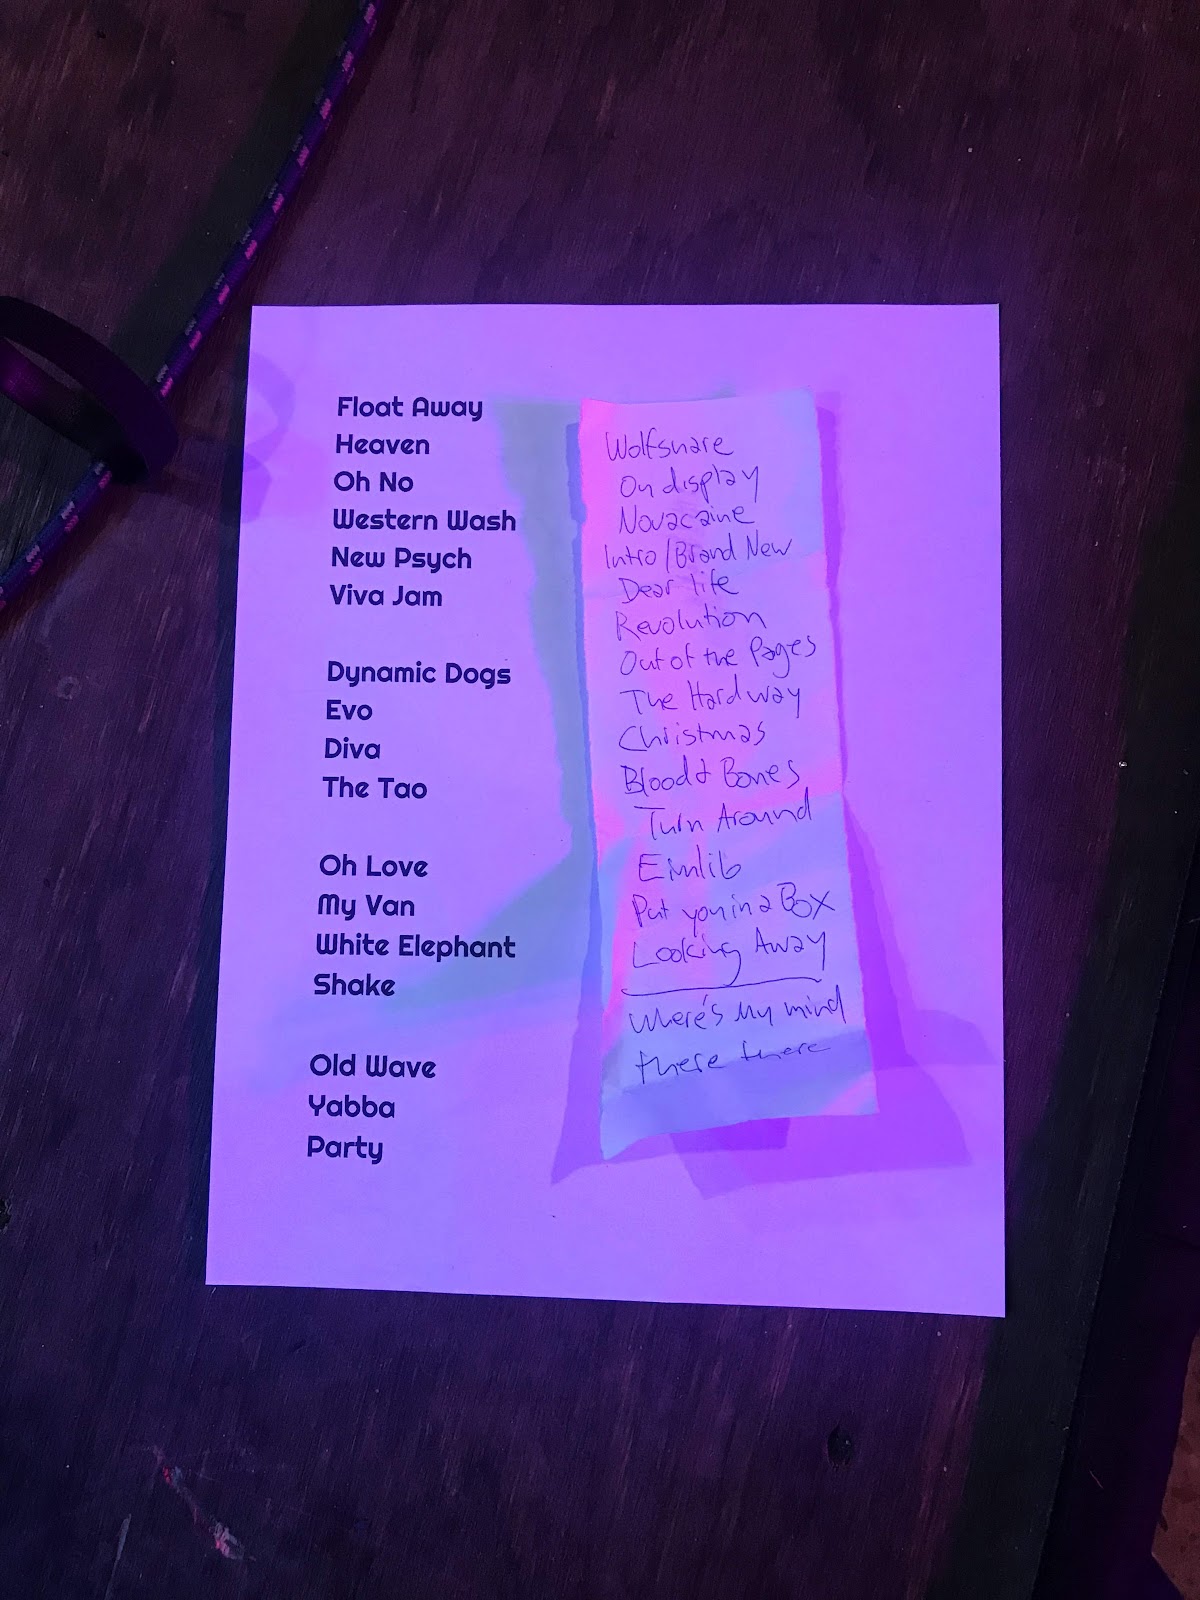 Float Away
Heaven
Oh No
Western Wash
New Psych
Viva Jam
Dynamic Dogs
Evo
Diva
The Tao
Oh Love
My Van
White Elephant
Shake
Old Wave
Yabba
Party
Wolfsnare
On display
Novacaine
Intro/Brand New
Dear life
Revolution
Out of the Pages
The Hard way
Christmas
Blood & Bones
Turn Around
Put you in a Box
Looking Away
Where's My mind
there there